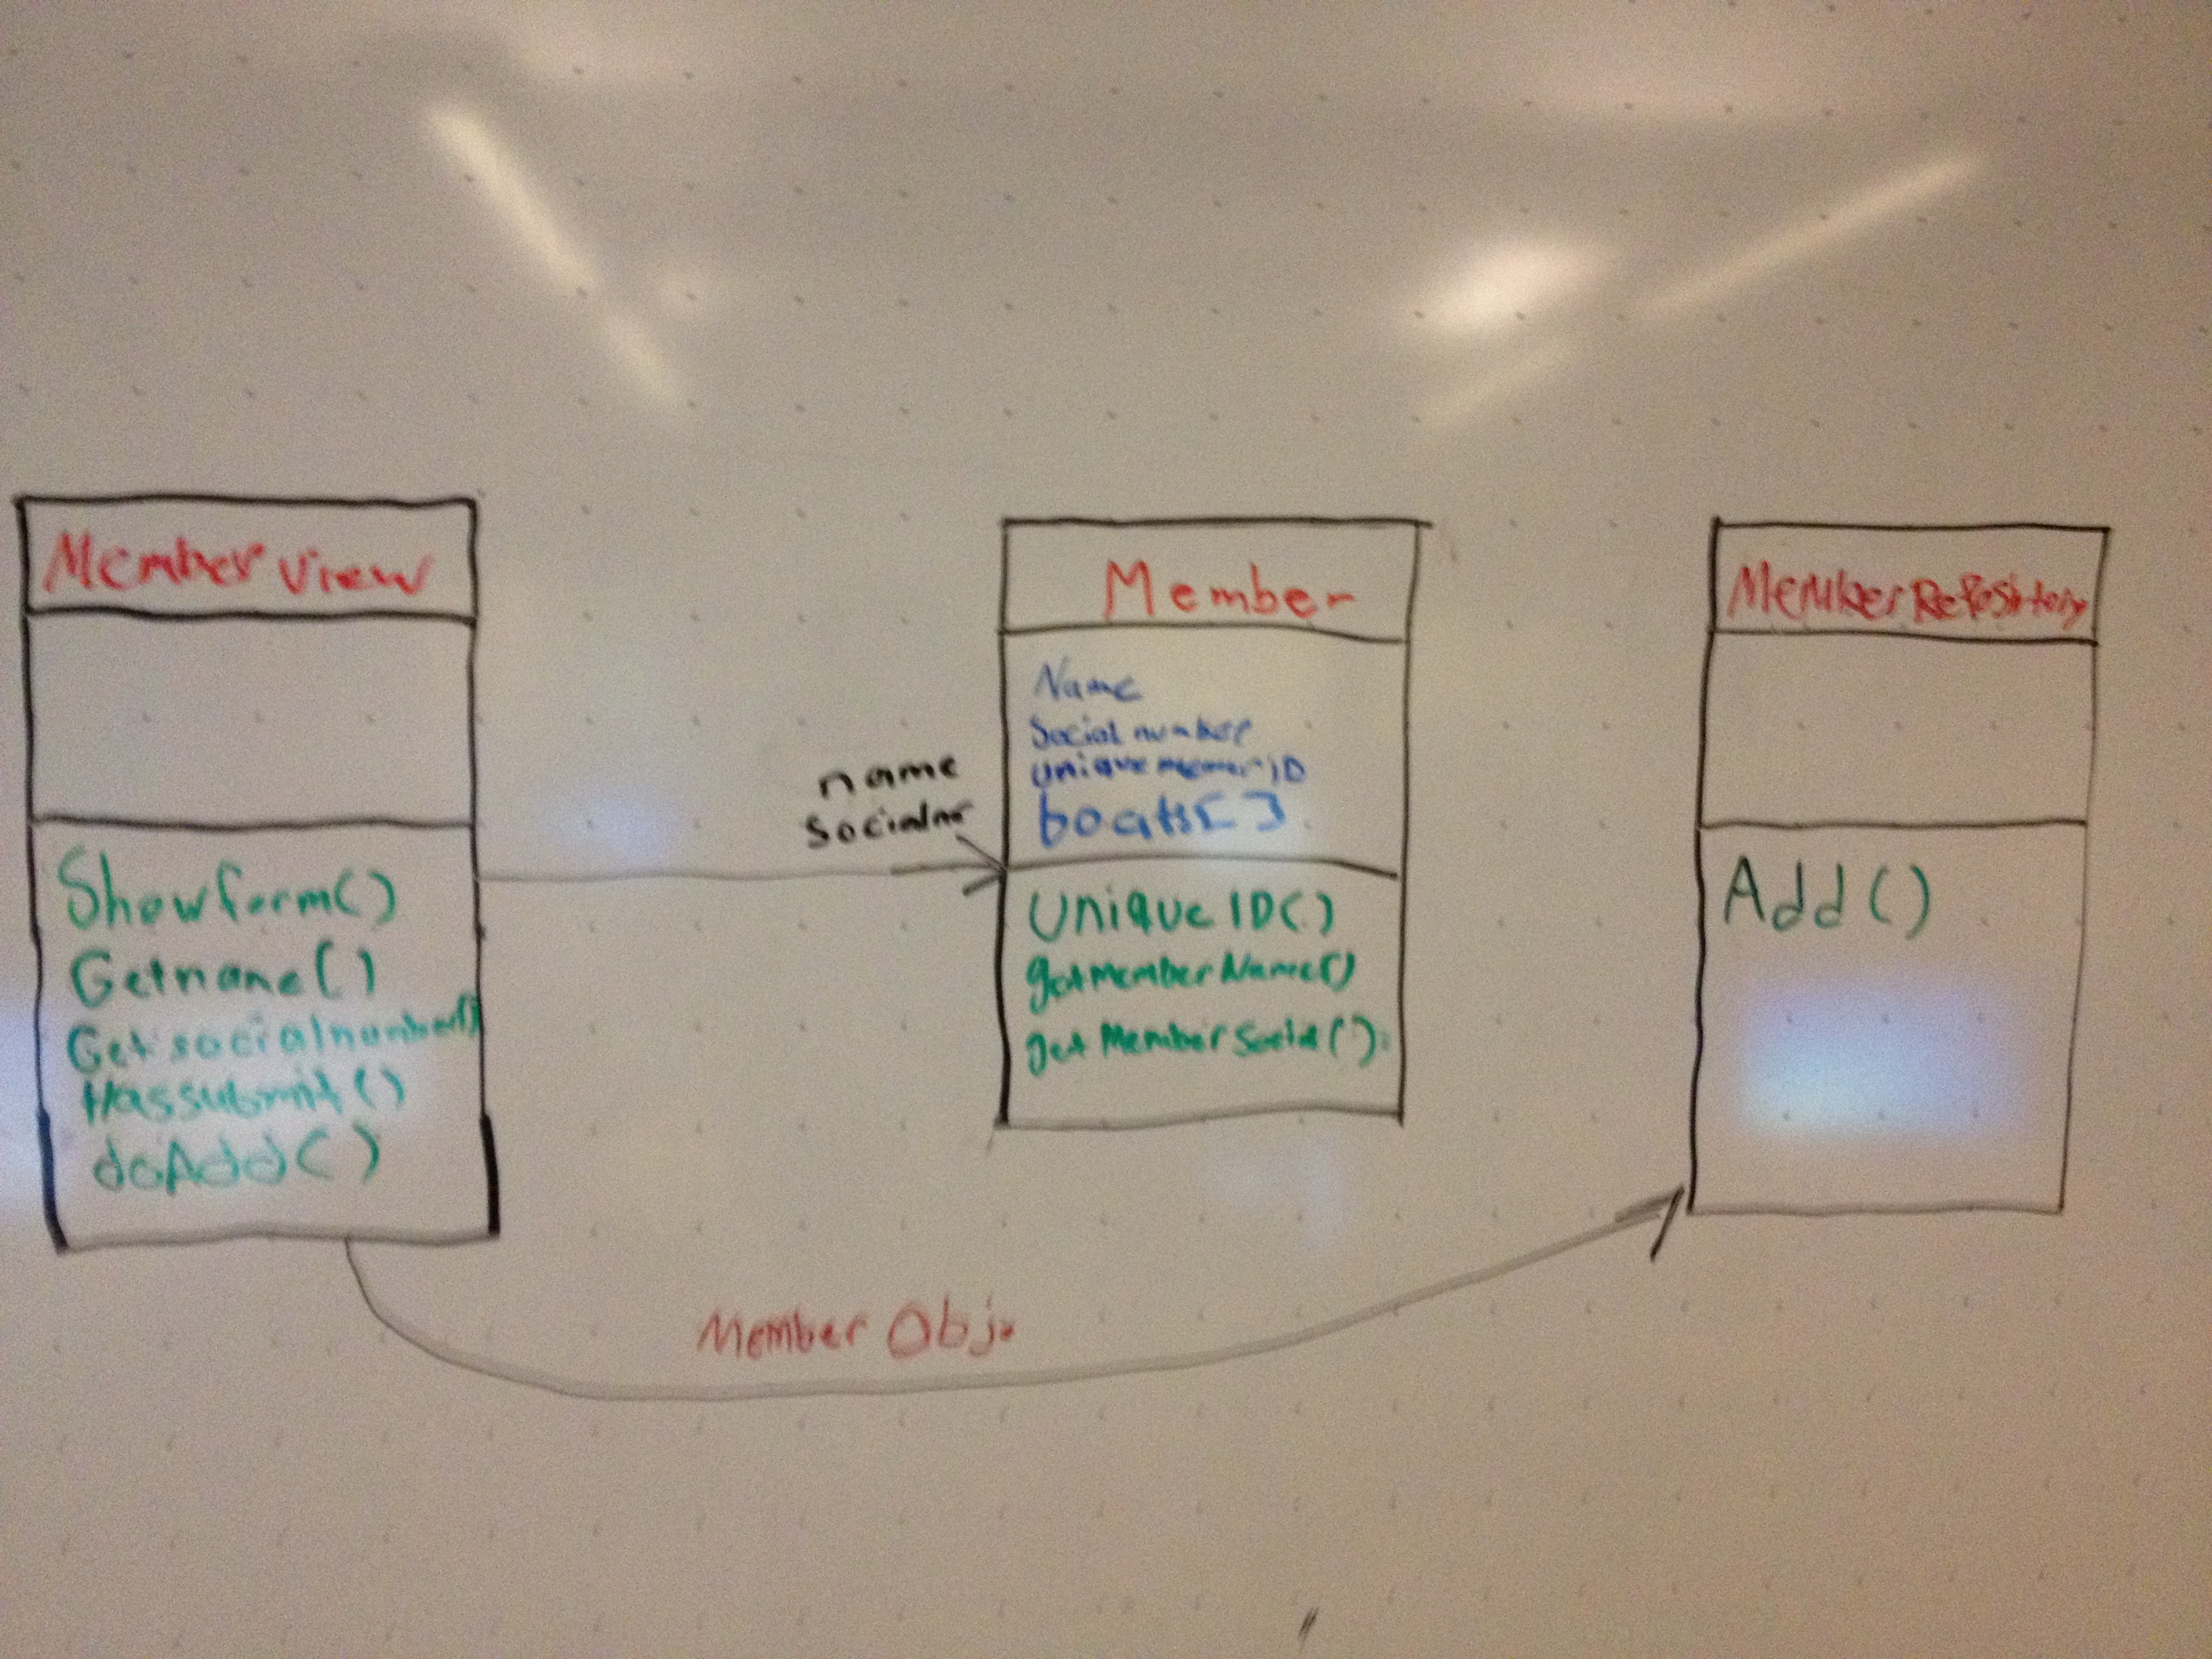 Member view
Showform()
Getname()
Getsocialnumber()
Hassubmit()
doAdd()
name
socialnr
Member
Name
Social number
boats[]
UniqueID()
getMemberName()
getMemberSocial()
MemberRepository
Add()
Member Obj